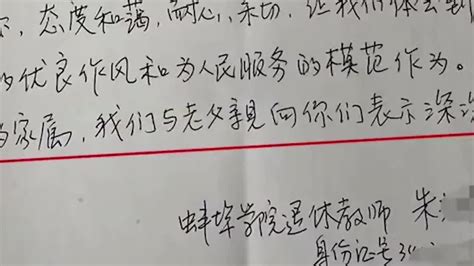 态度和蔼,耐心,亲切,让我们体会到
的优良作风和为人民服务的模范作为。
家属,我们与老父亲向你们表示深
蚌埠学院退休教师 朱
身份证号3